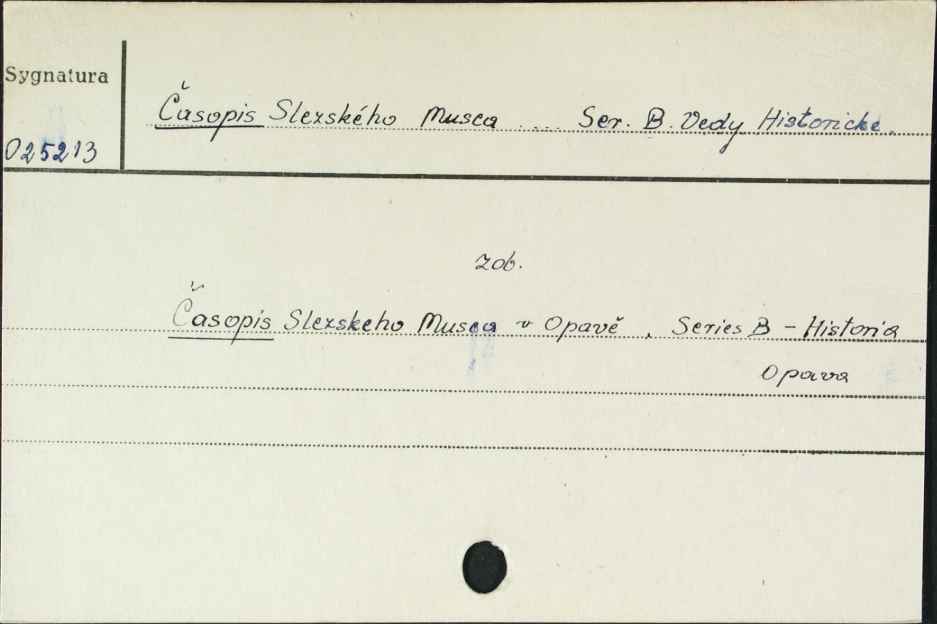 Sygnatura
Časopis Slezského Musea ... Ser. B. Vedy Historicke.
025213
zob.
Časopis Slezskeho Musea v Opavě, Series B - Historia
Opava